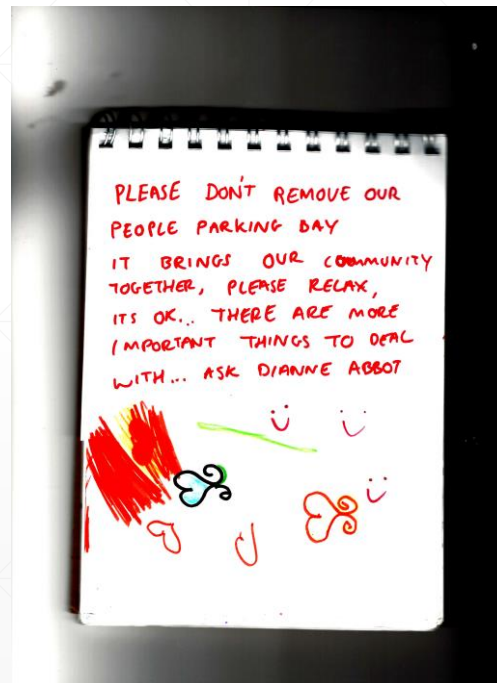 PLEASE DON'T REMOVE OUR
PEOPLE PARKING BAY
IT BRINGS OUR COMMUNITY
TOGETHER, PLEASE RELAX,
ITS OK... THERE ARE MORE
IMPORTANT THINGS TO DEAL
WITH... ASK DIANNE ABBOT